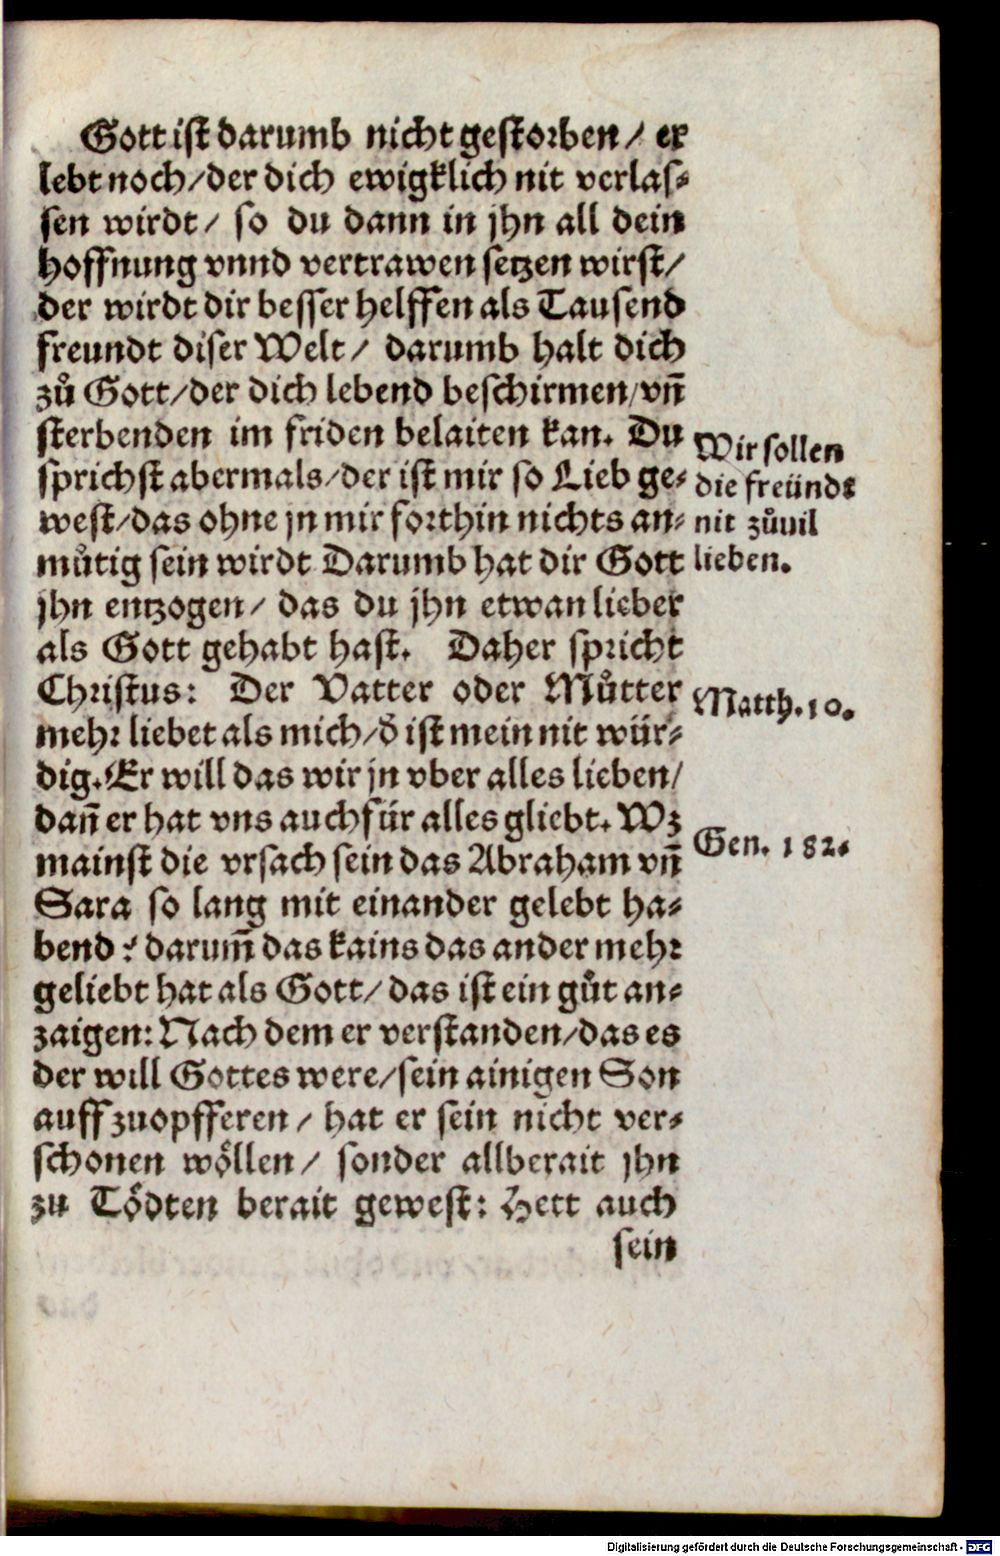 Gott ist darumb nicht gestorben / er
lebt noch / der dich ewigklich nit verlas-
sen wirdt / so du dann in jhn all dein
hoffnung vnnd vertrawen setzen wirst /
der wirdt dir besser helffen als Tausend
freundt diser Welt / darumb halt dich
zů Gott / der dich lebend beschirmen / vn̄
sterbenden im friden belaiten kan. Du
sprichst abermals / der ist mir so Lieb ge-
west / das ohne jn mir forthin nichts an-
můtig sein wirdt Darumb hat dir Gott
jhn entzogen / das du jhn etwan lieber
als Gott gehabt hast. Daher spricht
Christus: Der Vatter oder Můtter
mehr liebet als mich / d̄ ist mein nit wür-
dig. Er will das wir jn vber alles lieben /
dan̄ er hat vns auch für alles gliebt. Wz
mainst die vrsach sein das Abraham vn̄
Sara so lang mit einander gelebt ha-
bend? darum̄ das kains das ander mehr
geliebt hat als Gott / das ist ein gůt an-
zaigen: Nach dem er verstanden / das es
der will Gottes were / sein ainigen Son
auffzuopfferen / hat er sein nicht ver-
schonen wöllen / sonder allberait jhn
zu Tödten berait gewest: Hett auch
sein
Wir sollen
die freündt
nit zůuil
lieben.
Matth. 10.
Gen. 182.
Digitalisierung gefördert durch die Deutsche Forschungsgemeinschaft - DFG